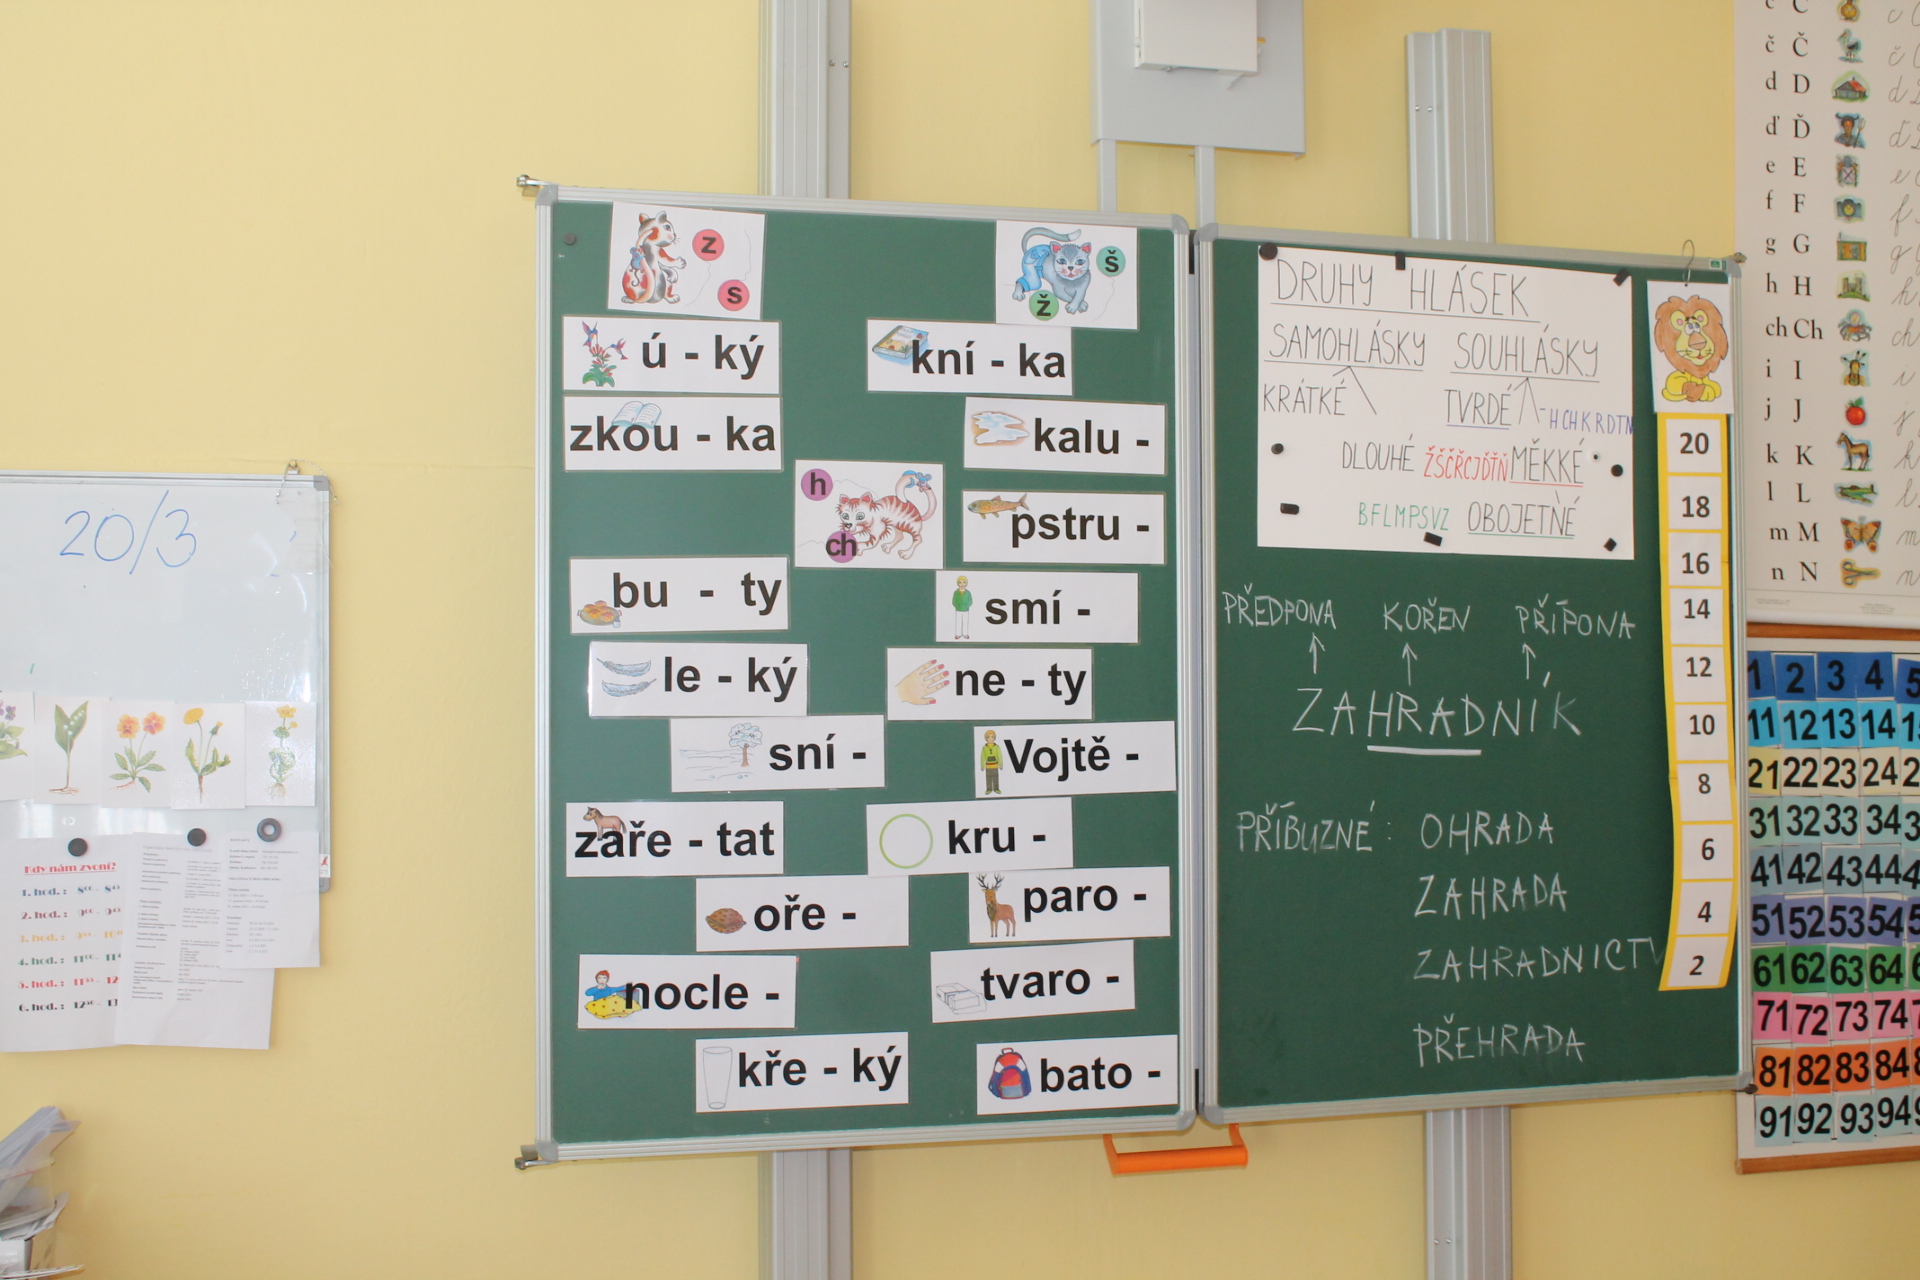 20/3
Kdy nám zvoní?
1. hod. : 8⁰⁰ - 8⁴⁵
2. hod. :
3. hod. :
4. hod. : 11⁰⁰ -
5. hod. : 11⁵⁵ - 12
6. hod. : 12⁵⁰ - 13
z
s
š
ž
ú - ký
kní - ka
zkou - ka
kalu -
h
ch
pstru -
bu - ty
smí -
le - ký
ne - ty
sní -
Vojtě -
zaře - tat
kru -
oře -
paro -
nocle -
tvaro -
kře - ký
bato -
DRUHY HLÁSEK
SAMOHLÁSKY SOUHLÁSKY
KRÁTKÉ TVRDÉ - H CH K R D T N
DLOUHÉ ŽŠČŘCJĎŤŇ MĚKKÉ
BFLMPSVZ OBOJETNÉ
PŘEDPONA KOŘEN PŘÍPONA
ZAHRADNÍK
PŘÍBUZNÉ : OHRADA
ZAHRADA
ZAHRADNICTV
PŘEHRADA
20
18
16
14
12
10
8
6
4
2
c C
č Č
d D
ď Ď
e E
f F
g G
h H
ch Ch
i I
j J
k K
l L
m M
n N
1 2 3 4 5
11 12 13 14
21 22 23 24
31 32 33 34
41 42 43 44
51 52 53 54
61 62 63 64
71 72 73 74
81 82 83 84
91 92 93 94